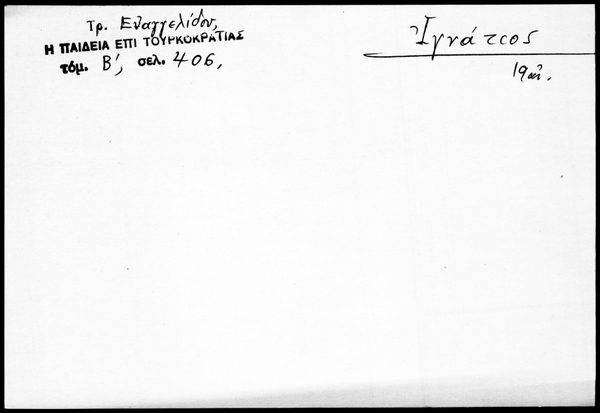 Τρ. Εὐαγγελίδου,
Η ΠΑΙΔΕΙΑ ΕΠΙ ΤΟΥΡΚΟΚΡΑΤΙΑΣ
τόμ. Β', σελ. 406,
Ἰγνάτιος
19